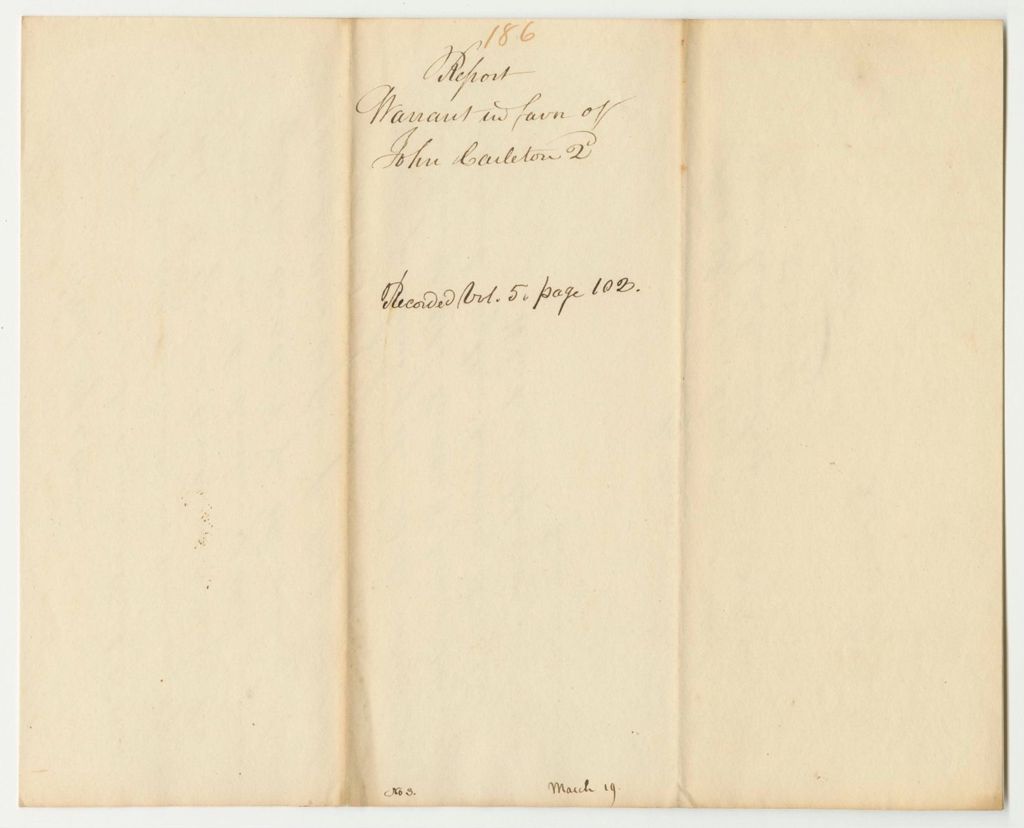 186
Report
Warrant in favor of
John Carleton 2d
Recorded Vol. 5. page 102.
No 3.
March 19.